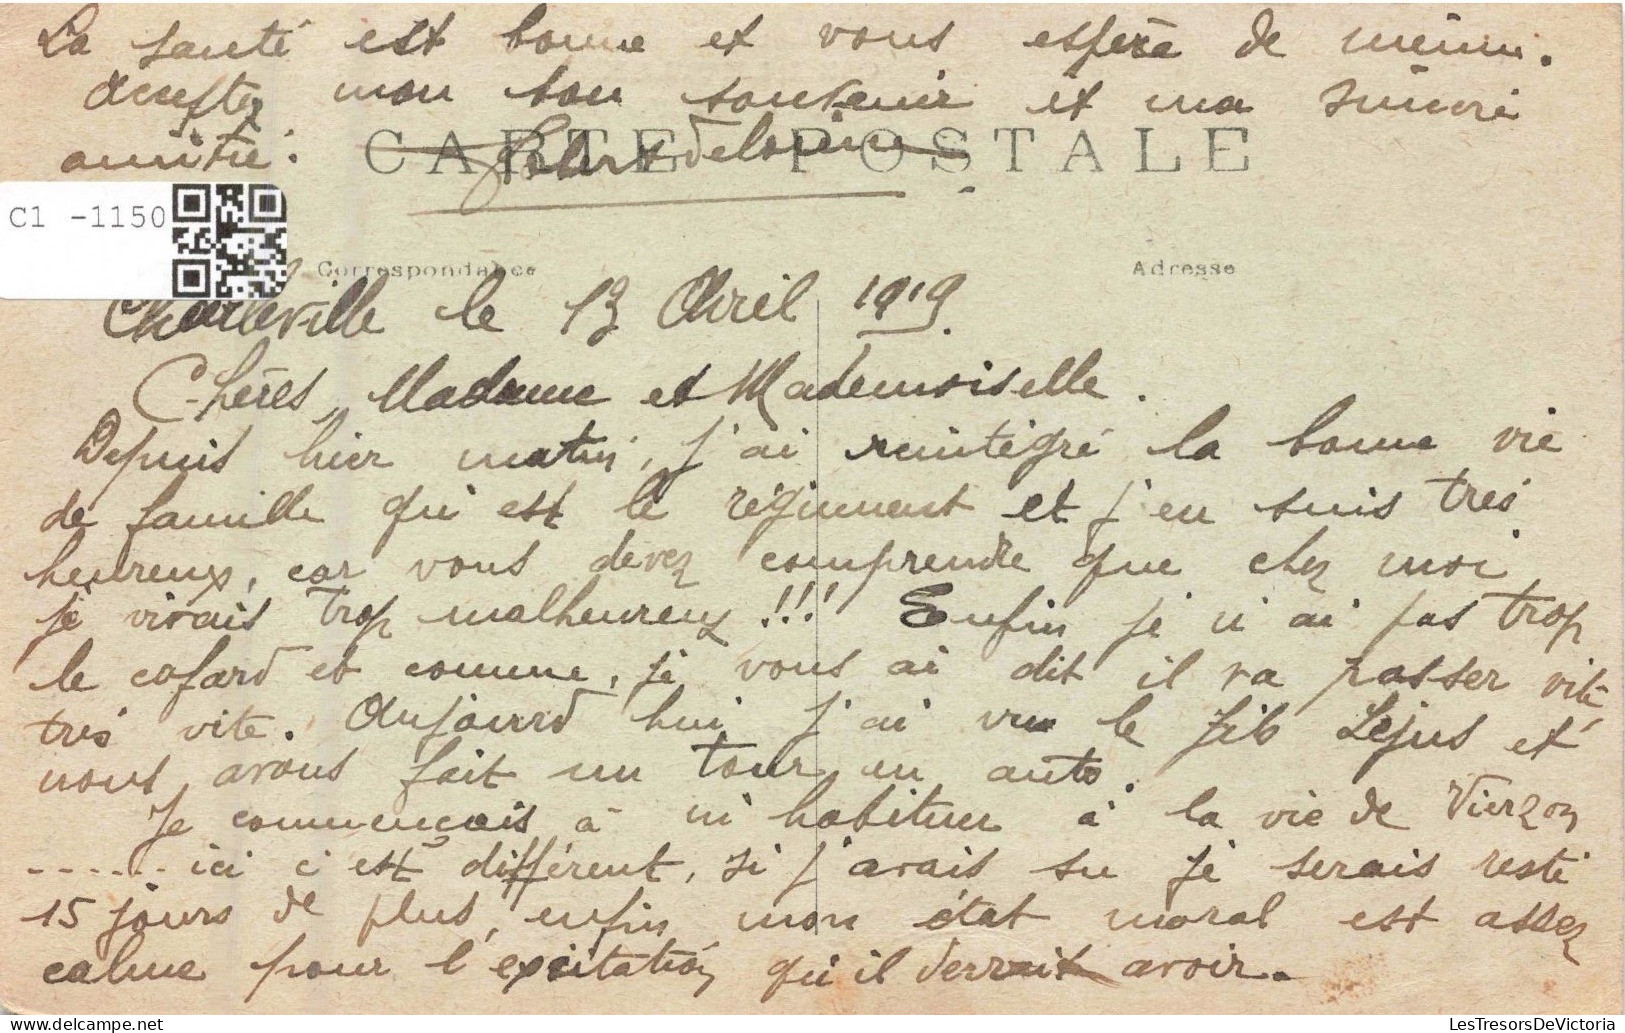 La santé est bonne et vous espère de même.
Acceptez mon bon souvenir et ma sincère
amitié.
CARTE POSTALE
C1 -1150
Correspondance
Adresse
Charleville le 13 Avril 1919.
Chères Madame et Mademoiselle.
Depuis hier matin, j'ai reintégré la bonne vie
de famille qui est le régiment et j'en suis très
heureux, car vous devez comprendre que chez moi
je vivais trop malheureux !!! Enfin je n'ai pas trop
le cafard et comme, je vous ai dit il va passer vite
très vite. Aujourd'hui j'ai vu le fils Lejus et
nous avons fait un tour en auto.
Je commençais à m'habituer à la vie de Vierzon
...... ici c'est différent, si j'avais su je serais resté
15 jours de plus, enfin mon état moral est assez
calme pour l'excitation qu'il devrait avoir.
LesTresorsDeVictoria